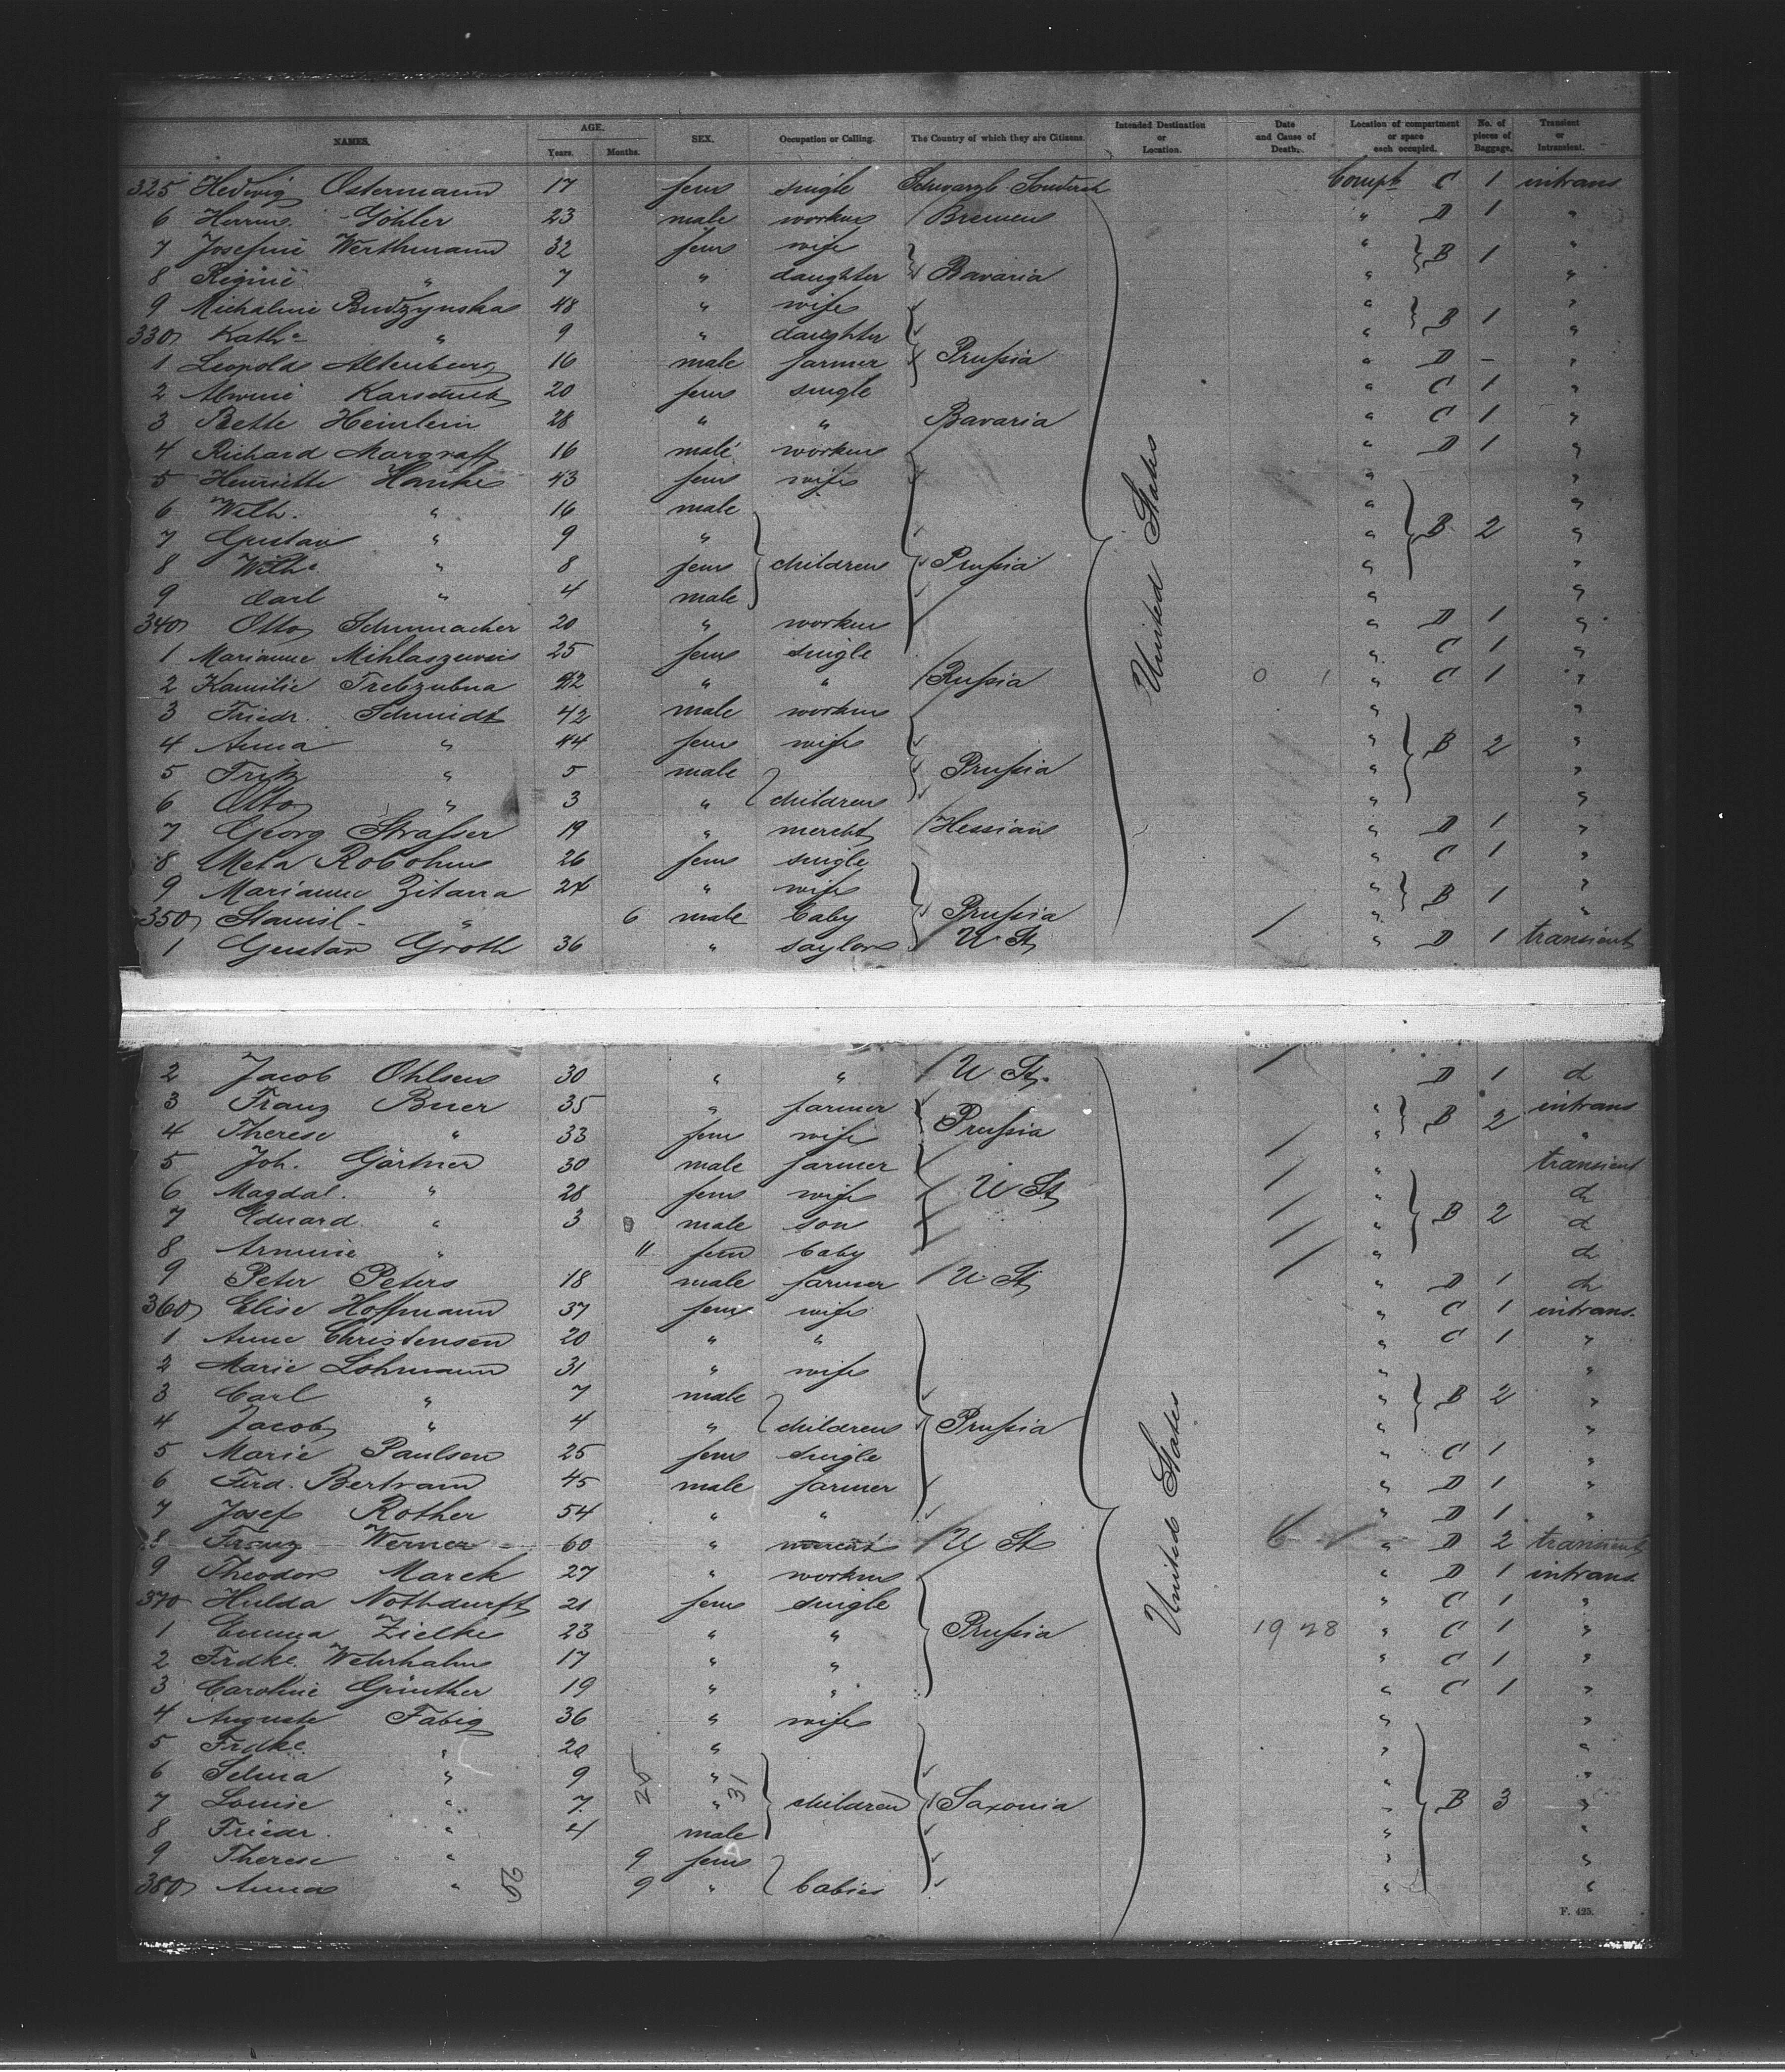 NAMES. AGE. Years. Months. SEX. Occupation or Calling. The Country of which they are Citizens. Intended Destination or Location. Date and Cause of Death. Location of compartment or space each occupied. No. of pieces of Baggage. Transient or Intransient.
325 Hedwig Ostermann 17 fem single Schwarzb. Sondersh Compt C 1 intrans
6 Herm. Göhler 23 male worker Bremen " D 1 "
7 Josefine Werthmann 32 fem wife " B 1 "
8 Regine " 7 " daughter Bavaria " "
9 Michaline Budzynska 48 " wife " B 1 "
330 Kathe " 9 " daughter " "
1 Leopold Altenburg 16 male farmer Prussia " D - "
2 Alwine 20 fem single " C 1 "
3 Bette Heinlein 28 " " Bavaria " C 1 "
4 Richard Margraff 16 male worker " D 1 "
5 Henriette Hanke 43 fem wife " "
6 Wilh. " 16 male " "
7 Gustav " 9 " " B 2 "
8 Wilhe " 8 fem children Prussia " "
9 Carl " 4 male " "
340 Otto Schumacher 20 " worker " D 1 "
1 Marianne 25 fem single " C 1 "
2 Kamilie 22 " " Russia " C 1 "
3 Friedr. Schmidt 42 male worker " "
4 Anna " 44 fem wife " B 2 "
5 Fritz " 5 male Prussia " "
6 Otto " 3 " children " "
7 Georg Strasser 19 " mercht Hessian " D 1 "
8 Meta Robohm 26 fem single " C 1 "
9 Marianne Zitara 24 " wife " B 1 "
350 Stanisl. " 6 male baby Prussia " "
1 Gustav Groth 36 " saylor U St " D 1 transient
United States
2 Jacob Ohlsen 30 " " U St. D 1 d
3 Franz Buer 35 " farmer Prussia " B 2 intrans
4 Therese " 33 fem wife " "
5 Joh. Gärtner 30 male farmer " transient
6 Magdal. " 28 fem wife U St " d
7 Eduard " 3 male son " B 2 d
8 Armine " 11 fem baby " d
9 Peter Peters 18 male farmer U St " D 1 d
360 Elise Hoffmann 37 fem wife " C 1 intrans.
1 Anne Christensen 20 " " " C 1 "
2 Marie Lohmann 31 " wife " "
3 Carl " 7 male " B 2 "
4 Jacob " 4 " children Prussia " "
5 Marie Paulsen 25 fem single " C 1 "
6 Ferd. Bertram 45 male farmer " D 1 "
7 Josef Rother 54 " " " D 1 "
8 Franz Werner 60 " mercht U St " D 2 transient
9 Theodor March 27 " worker " D 1 intrans
370 Hulda Nothdurft 21 fem single " C 1 "
1 Emma Zielke 23 " " Prussia 19 28 " C 1 "
2 Frdke. Wehrhahn 17 " " " C 1 "
3 Caroline Günther 19 " " " C 1 "
4 Auguste Fabig 36 " wife " "
5 Frdke. " 20 " " "
6 Selma " 9 " " "
7 Louise " 7 " children Saxonia " B 3 "
8 Friedr. " 4 male " "
9 Therese " 9 fem " "
380 Anna " 9 " babies " "
United States
25
31
56
F. 425.